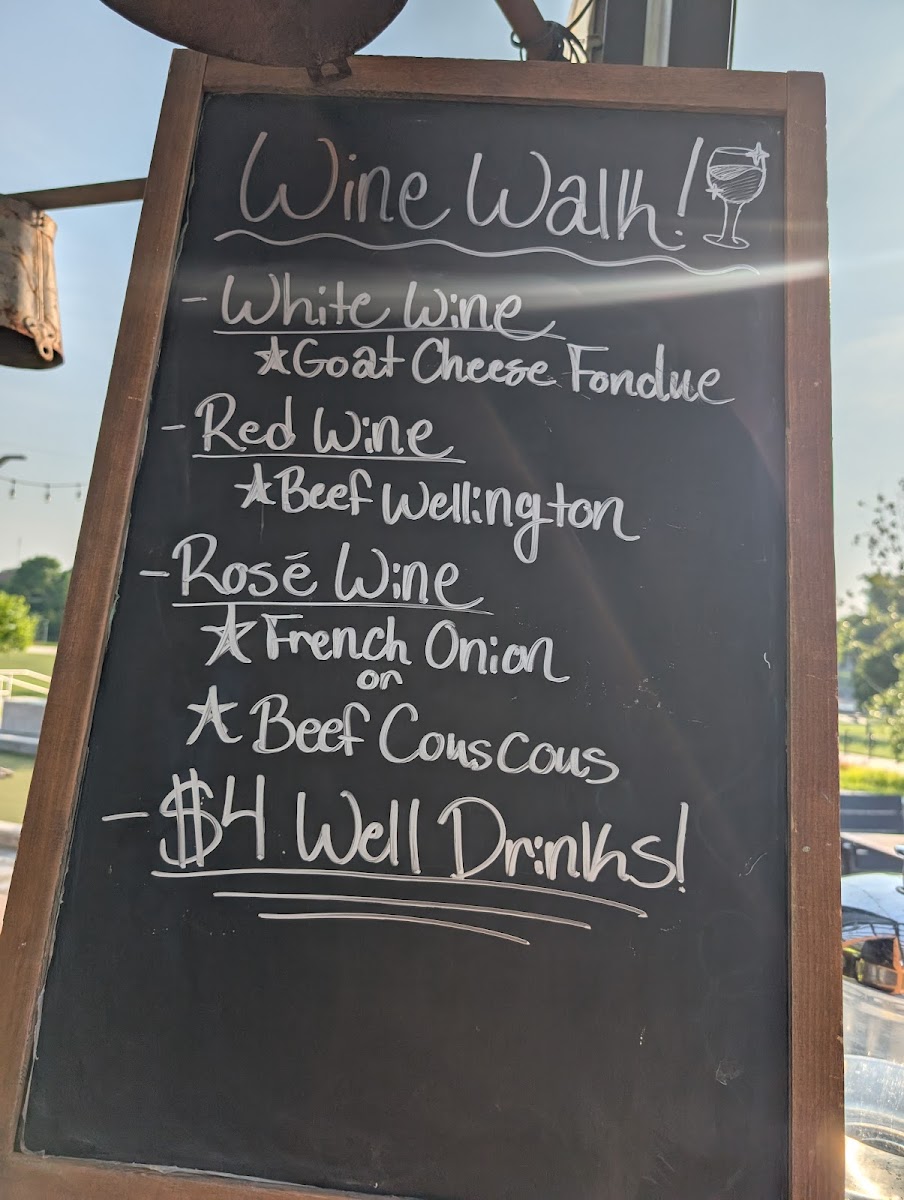 Wine Walk!
- White Wine
★Goat Cheese Fondue
- Red Wine
★Beef Wellington
- Rosé Wine
★French Onion
or
★Beef Couscous
- $4 Well Drinks!